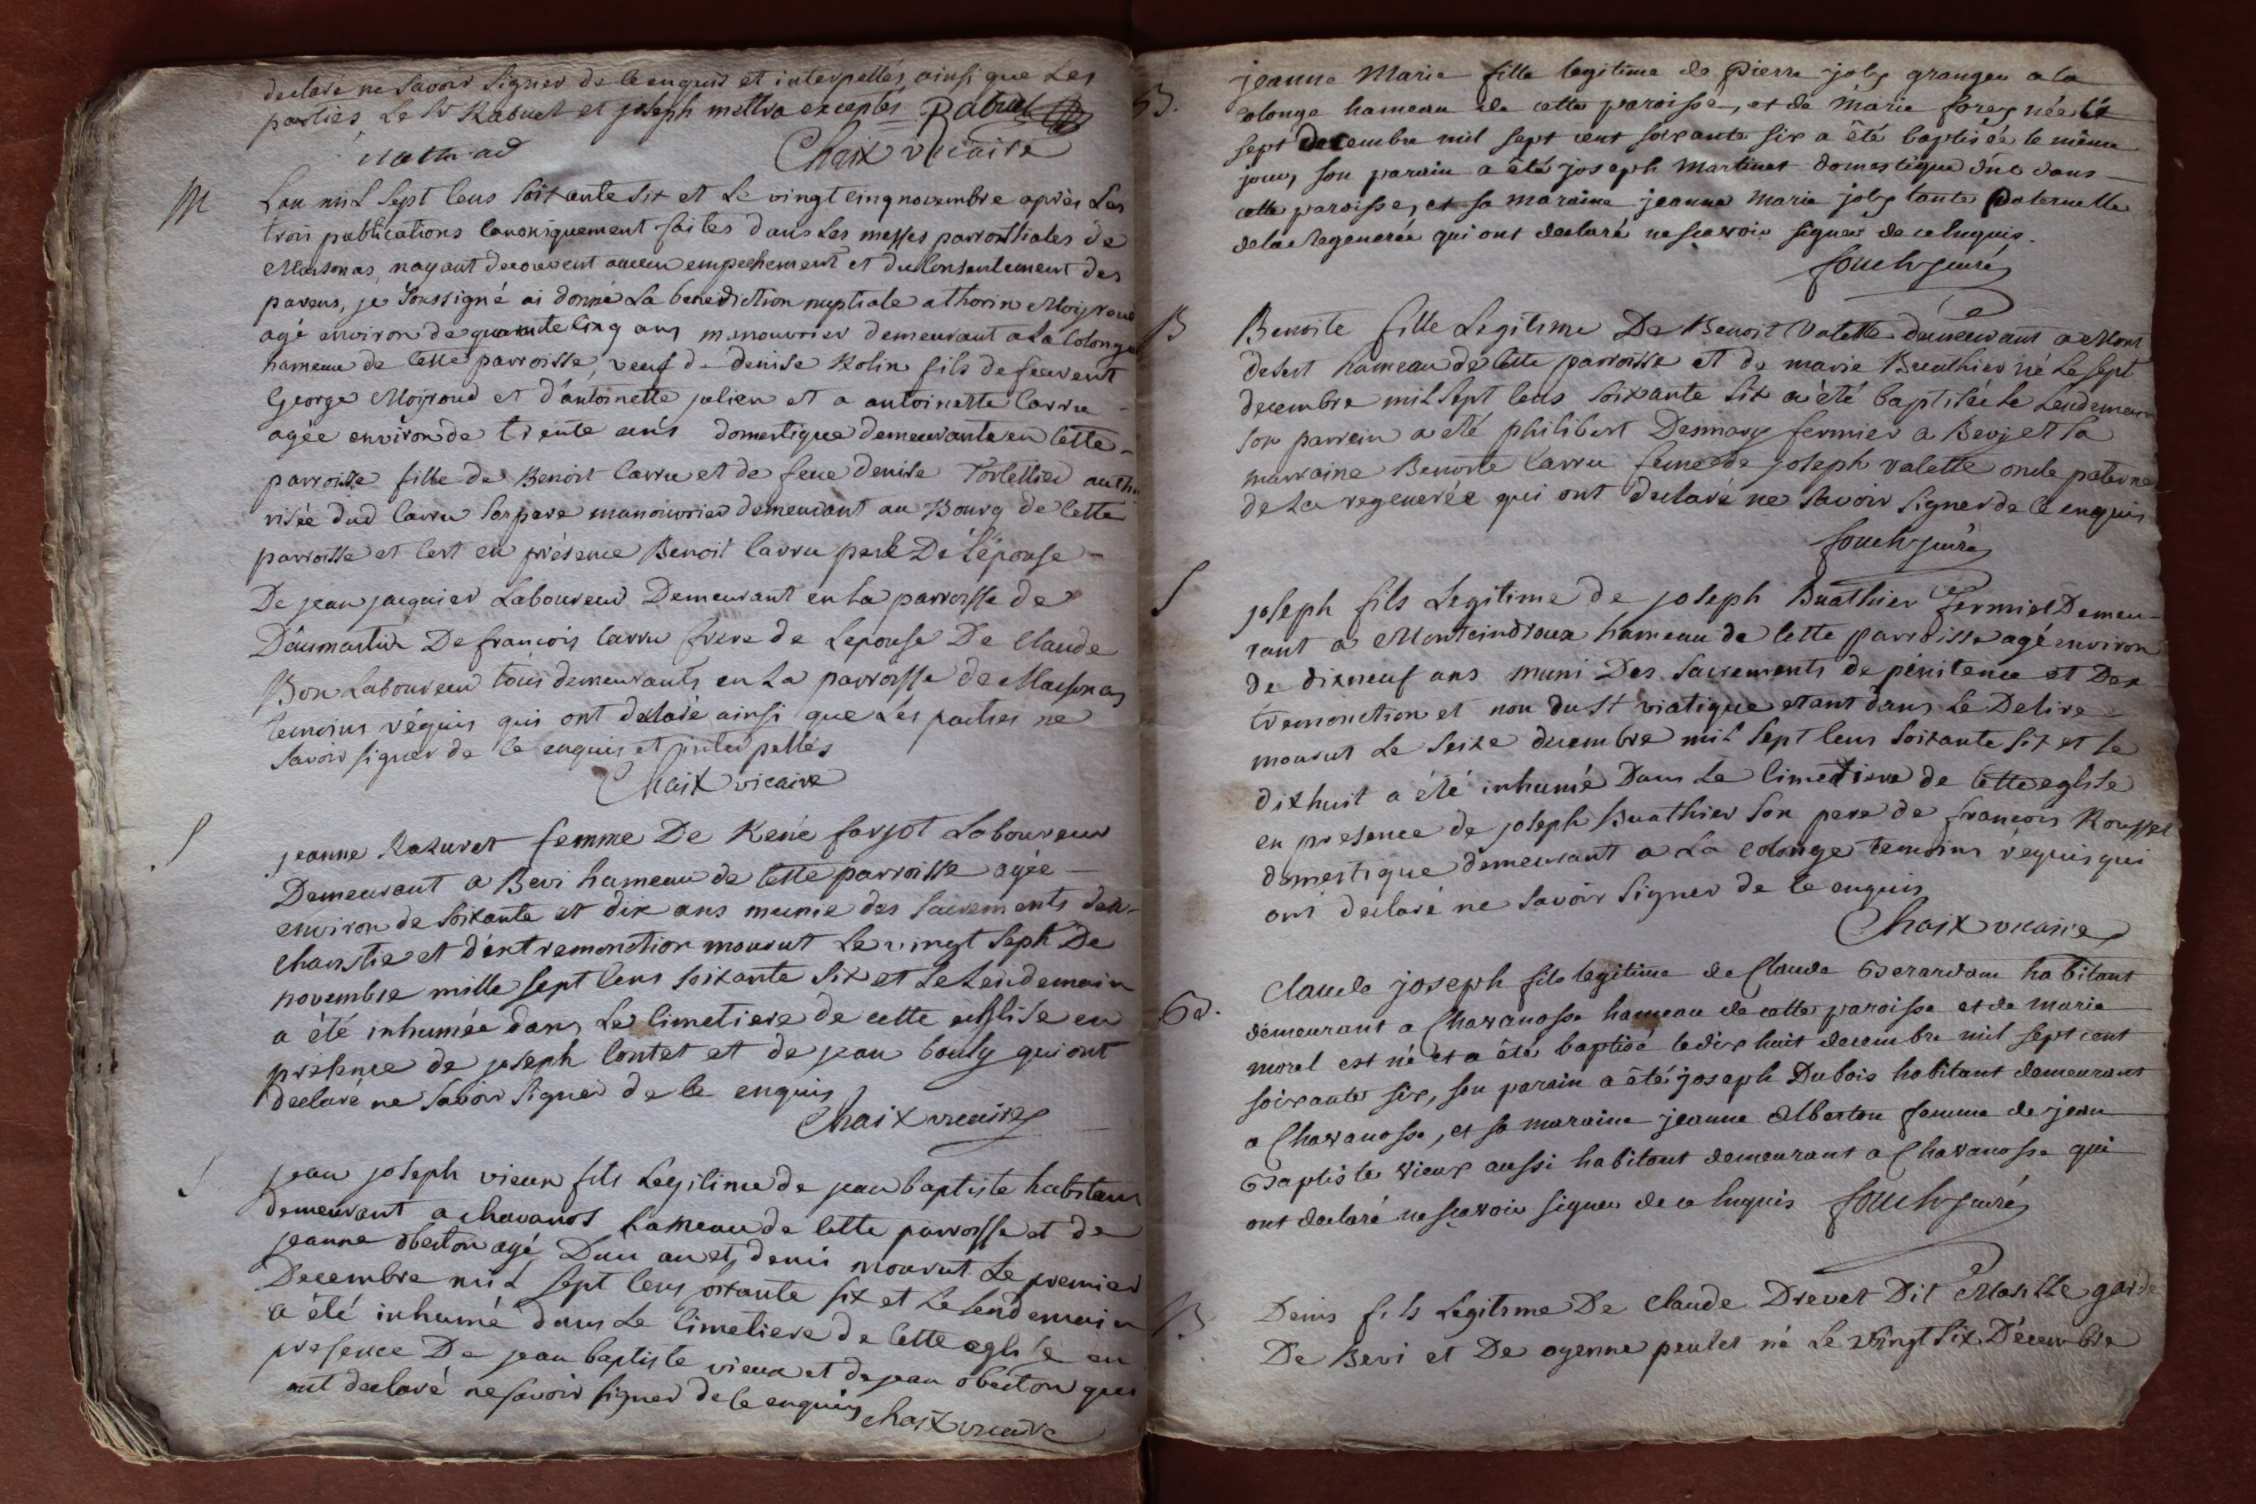 declaré ne Savoir Signer de ce enquis et interpellés ainsi que Les
parties Le Sr Rabuel et joseph exceptés Rabuel
Chaix vicaire
M
L'an mil Sept Cens Soixante Six et Le vingt cinq novembre après Les
trois publications Canoniquement faites dans Les messes parroissiales de
Marsonas nayant decouvert aucun empechement et du Consentement des
parens, je Soussigné ai donné La benediction nuptiale a thorin Moiroud
agé environ de quarante Cinq ans manouvrier demeurant a La Colonge
hameau de Cette parroisse, veuf de denise Rolin fils de feuvent
George Moiroud et d'antoinette julien et a antoinette Carru
agée environ de trente ans domestique demeurante en Cette
parroisse fille de Benoit Carru et de feue denise Tortellier autho
risée dud Carru Son pere manouvrier demeurant au Bourg de Cette
parroisse et C'est en présence Benoit Carru pere De L'épouse
De jean jacquier Laboureur Demeurant en La parroisse de
Daumartin De francois Carru frere de Lepouse De Claude
Bon Laboureur tous demeurants en La parroisse de Marsonas
temoins réquis qui ont declaré ainsi que Les parties ne
Savoir signer de Ce enquis et interpellés
Chaix vicaire
S
jeanne Razuret femme De René farjot Laboureur
Demeurant a Bevi hameau de Cette parroisse agée
environ de Soixante et dix ans munie des Sacrements deu-
charistie et d'extremonction mourut Le vingt Sept De
novembre mille Sept Cens Soixante Six et Le Lendemain
a été inhumée dans Le Cimetiere de cette eglise en
présence de joseph Contet et de jean bouly qui ont
declaré ne Savoir Signer de Ce enquis
Chaix vicaire
S
jean joseph vieux fils Legitime de jean baptiste habitant
demeurant a chavanos hameau de Cette parroisse et de
jeanne oberton agé Dun an et demi mourut Le premier
Decembre mil Sept Cens soixante Six et Le Lendemain
a été inhumé dans Le Cimetiere de Cette eglise en
présence De jean baptiste vieux et de jean oberton qui
ont declaré ne Savoir Signer de Ce enquis Chaix vicaire
B.
jeanne Marie fille legitime de Pierre joly granger a la
Colonge hameau de cette paroisse, et de Marie forey née le
sept decembre mil sept cent soixante six a êté baptisée le même
jour, son parain a êté joseph Martinet domestique dans
cette paroisse, et sa maraine jeanne Marie joly tante Paternelle
de la Regenerée qui ont declaré ne scavoir signer de ce Enquis.
fouch curé
B
Benoite fille Legitime De Benoit Valette demeurant a Mont
desert hameau de Cette parroisse et de marie Buathier né Le Sept
decembre mil Sept Cens Soixante Six a été baptisée Le Lendemain
Son parrein a eté philibert Desmary fermier a Bevy et Sa
marraine Benoite Carru femme de joseph valette oncle paternel
de La regenerée qui ont declaré ne Savoir Signer de Ce enquis
fouch curé
S
joseph fils Legitime de joseph Buathier fermier Demeu-
rant a Montcindroux hameau de Cette parroisse agé environ
de dixneuf ans muni Des Sacrements de pénitence et Dex
tremonction et non du St viatique etant dans Le Delire
mourut Le Seize decembre mil Sept Cens Soixante Six et Le
dix huit a été inhumé Dans Le Cimetiere de Cette eglise
en presence de joseph Buathier Son pere de francois Roussel
domestique demeurant a La Colonge temoins réquis qui
ont declaré ne Savoir Signer de Ce enquis
Chaix vicaire
B.
Claude joseph fils legitime de Claude Gerardan habitant
demeurant a Chavanosse hameau de cette paroisse et de Marie
morel est né et a êté baptisé le dix huit decembre mil sept cent
soixante six, son parain a êté joseph Dubois habitant demeurant
a Chavanosse, et sa maraine jeanne Alberton femme de jean
Baptiste Vieux aussi habitant demeurant a Chavanosse qui
ont declaré ne scavoir signer de ce Enquis fouch curé
B
Denis fils Legitime De Claude Drevet Dit garde
De Bevi et De oyenne peulet né Le vingt Six Décembre